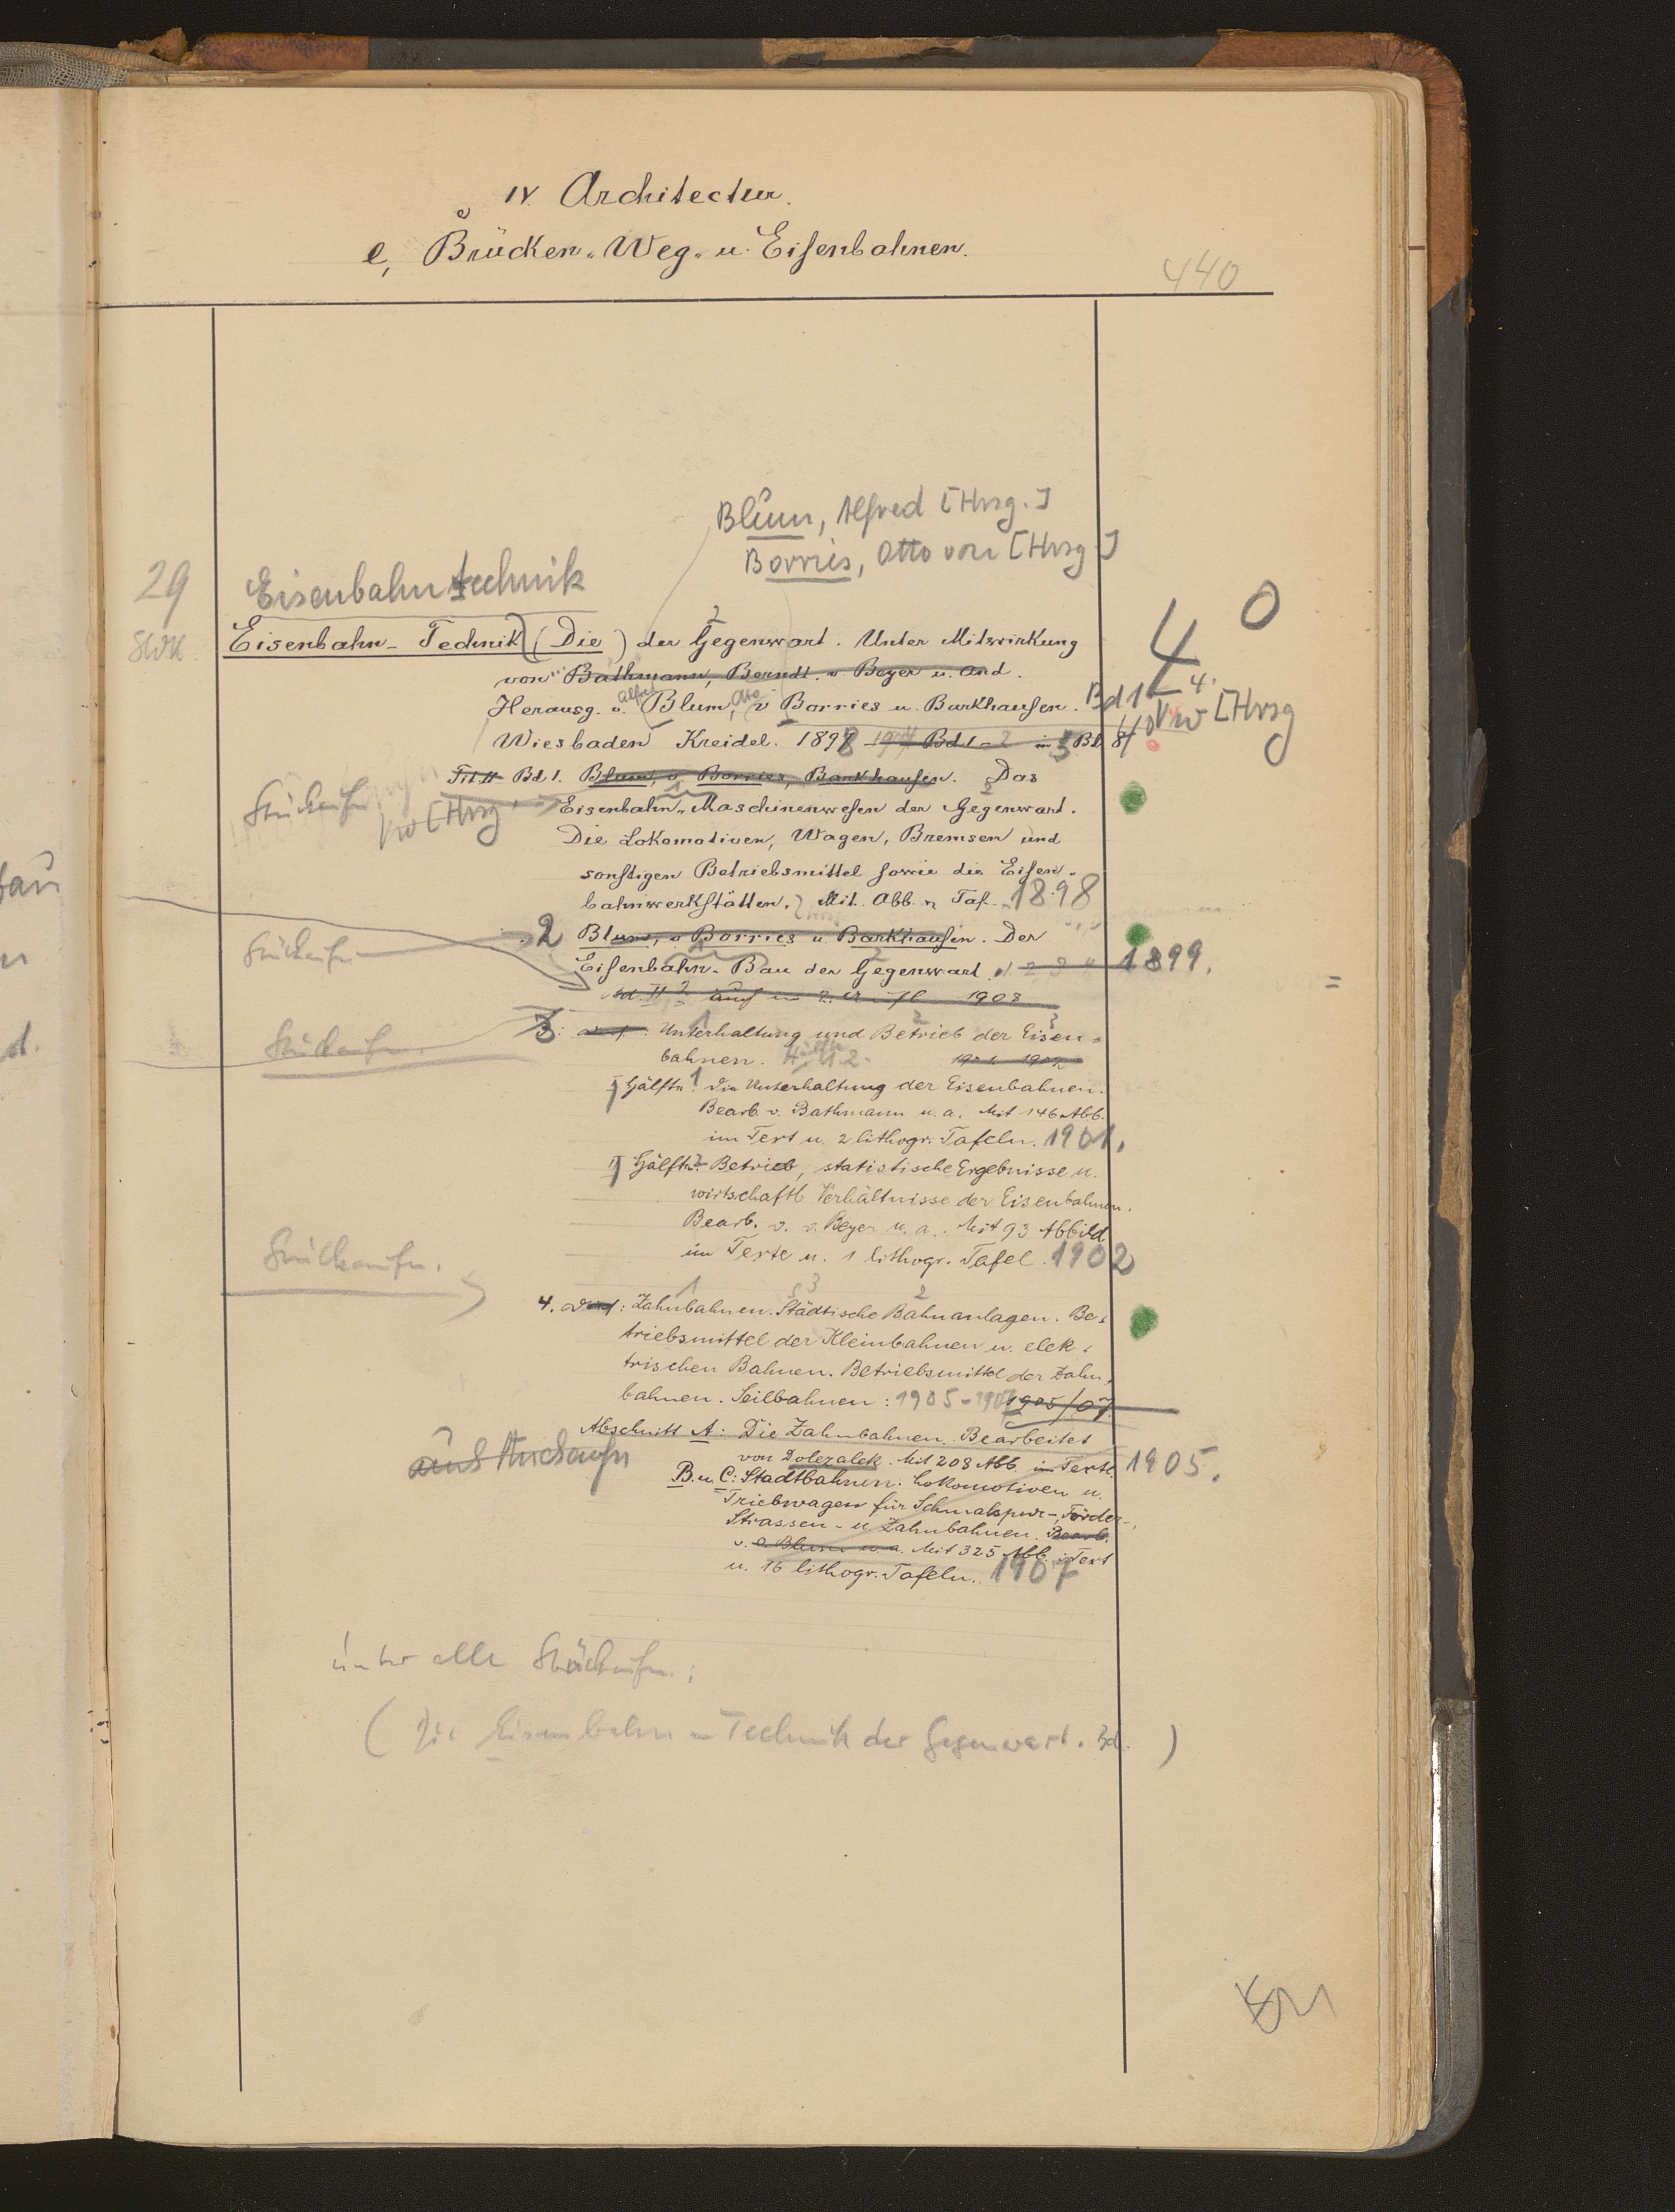 IV. Architectur.
e, Brücken- Weg- u. Eisenbahnen.
440
Blum, Alfred [Hrsg.]
Borries, Otto von [Hrsg.]
29
Eisenbahntechnik
SWK
Eisenbahn-Technik (Die) der Gegenwart. Unter Mitwirkung
4° 
von Bathmann, Berndt, v. Beyer u. And.
Herausg. v. Alfred Blum, Otto v Borries u. Barkhausen. Bd 1-4.
Vw [Hrsg
Wiesbaden Kreidel. 1898 Bd. 1-2 in 3 Bd. 8°
Bd 1. Blum, v. Borries, Barkhausen. Das
Stückaufn.
Vw [Hrsg
Eisenbahn-Maschinenwesen der Gegenwart.
Die Lokomotiven, Wagen, Bremsen und
sonstigen Betriebsmittel sowie die Eisen-
bahnwerkstätten. Mit Abb. u. Taf. 1898
2 Blum, v Borries u. Barkhausen. Der
Stückaufn.
Eisenbahn-Bau der Gegenwart. 1899.
Bd. II 2 2. Aufl 1908
Stückaufn.
3: Unterhaltung und Betrieb der Eisen-
bahnen. Hälfte 1 u 2. 1901-1902
Hälfte 1. Die Unterhaltung der Eisenbahnen.
Bearb. v. Bathmann u. a. Mit 146 Abb.
im Text u. 2 lithogr. Tafeln. 1901.
Hälfte 2 Betrieb, statistische Ergebnisse u.
wirtschaftl. Verhältnisse der Eisenbahnen.
Bearb. v. v. Beyer u. a. Mit 93 Abbild
im Texte u. 1 lithogr. Tafel. 1902
Stückaufn.
4. Zahnbahnen. Städtische Bahnanlagen. Be-
triebsmittel der Kleinbahnen u. elek-
trischen Bahnen. Betriebsmittel der Zahn-
bahnen. Seilbahnen: 1905-1907 1905/07
Abschnitt A: Die Zahnbahnen. Bearbeitet
von Dolezalek. Mit 208 Abb. im Texte. 1905.
B. u. C: Stadtbahnen. Lokomotiven u.
Triebwagen für Schmalspur-, Förder-,
Strassen- u. Zahnbahnen. Bearb.
v. A. Blum u. a. Mit 325 Abb. i. Text
u. 16 lithogr. Tafeln. 1907
unter alle Stückaufn.:
(Die Eisenbahn-Technik der Gegenwart. Bd. )